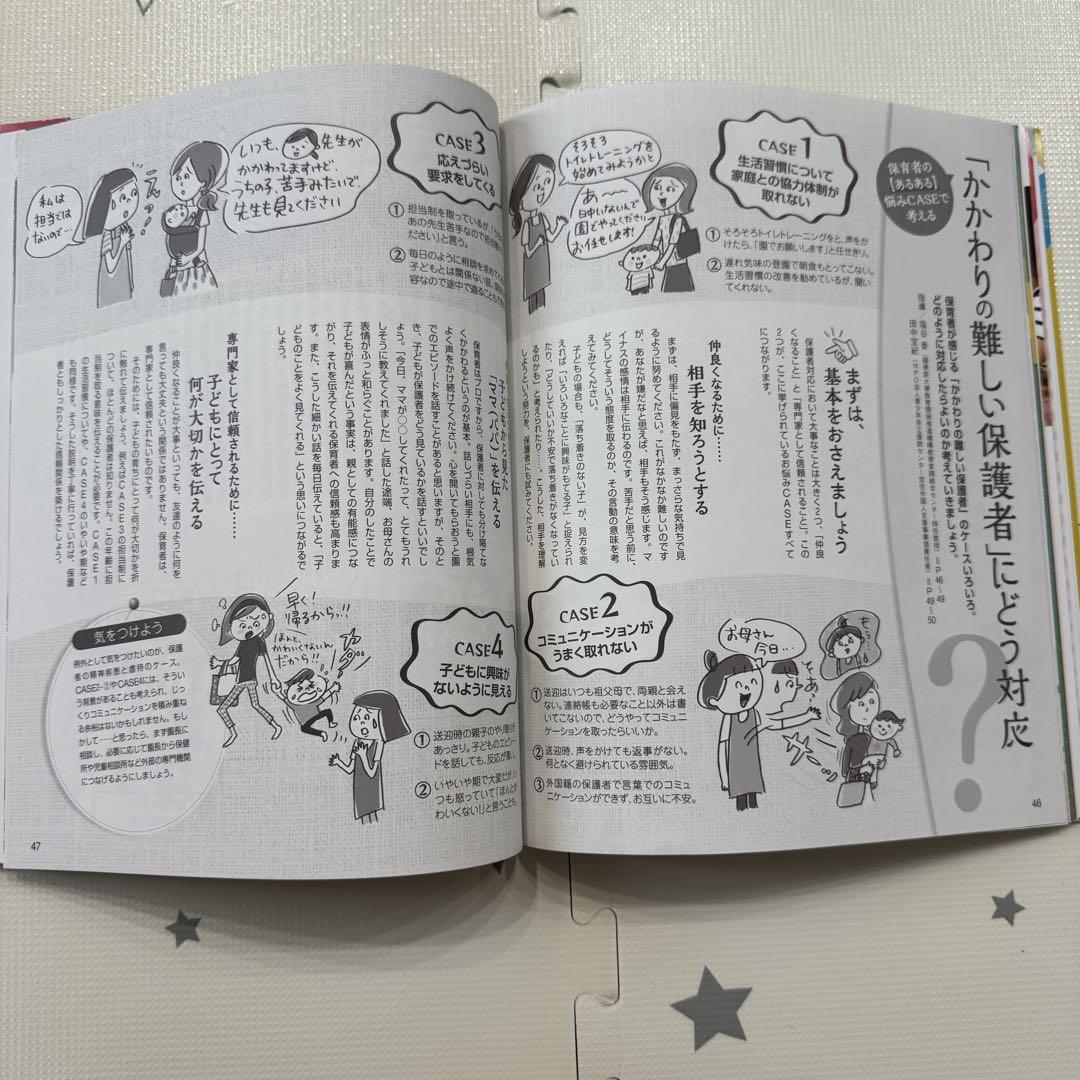 保育者の
【あるある】
悩みCASEで
考える
「かかわりの難しい保護者」にどう対応?
保育者が感じる「かかわりの難しい保護者」のケースいろいろ。
どのように対応したらよいのか考えていきましょう。
CASE 1
生活習慣について
家庭との協力体制が
取れない
そろそろ
トイレトレーニングを
始めてみようかと
あ〜
日中いないんで
園でやってください
お任せします!
① そろそろトイレトレーニングをと、声をか
けたら、「園でお願いします」と任せきり。
② 遅れ気味の登園で朝食もとってこない。
生活習慣の改善を勧めているが、聞い
てくれない。
まずは、
基本をおさえましょう
保護者対応において大事なことは大きく2つ、「仲良
くなること」と「専門家として信頼されること」。この
2つが、ここに挙げられているお悩みCASEすべて
につながります。
仲良くなるために……
相手を知ろうとする
まずは、相手に偏見をもたず、まっさらな気持ちで見
るように努めてください。これがなかなか難しいのです
が、あなたが嫌だなと思えば、相手もそう感じます。マ
イナスの感情は相手に伝わるのです。苦手だと思う前に、
どうしてそういう態度を取るのか、その言動の意味を考
えてみてください。
子どもの場合も、「落ち着きのない子」が、見方を変
えれば「いろいろなことに興味がもてる子」と捉えられ
たり、「どうしていいか不安で落ち着きがなくなってい
るのかも」と考えられたり……。こうした、相手を理解
しようという努力を、保護者にも試みてください。
CASE 2
コミュニケーションが
うまく取れない
お母さん
今日…
① 送迎はいつも祖父母で、両親と会え
ない。連絡帳も必要なこと以外は書
いてこないので、どうやってコミュニ
ケーションを取ったらいいか。
② 送迎時、声をかけても返事がない。
何となく避けられている雰囲気。
③ 外国籍の保護者で言葉でのコミュ
ニケーションができず、お互いに不安。
46
CASE 3
応えづらい
要求をしてくる
いつも、先生が
かかわってますけど、
うちの子、苦手みたいで、
先生も見てください
私は
担当では
ないので…
① 担当制を取っているが
あの先生苦手なので担当
ださい」と言う。
② 毎日のように相談を求めて
子どもとは関係ない話
容なので途中で遮ること
子どもから見た
“ママ(パパ)”を伝える
保育者はプロですから、保護者に対しても分け隔てな
くかかわるというのが基本。話しづらい相手にも、根気
よく声をかけ続けてください。心を開いてもらおうと園
でのエピソードを話すことがあると思いますが、そのと
き、子どもが保護者をどう見ているかを話すといいでし
ょう。「今日、ママが○○してくれたって、とてもうれ
しそうに教えてくれました」と話した途端、お母さんの
表情がふっと和らぐことがあります。自分のしたことで
子どもが喜んだという事実は、親としての有能感につな
がり、それを伝えてくれる保育者への信頼感も高まりま
す。また、こうした細かい話を毎日伝えていると、「子
どものことをよく見てくれる」という思いにつながるで
しょう。
専門家として信頼されるために……
子どもにとって
何が大切かを伝える
仲良くなることが大事といっても、友達のように何を
言っても大丈夫という関係ではありません。保育者は、
専門家として信頼されたいものです。
そのためには、子どもの育ちにとって何が大切かを折
に触れて伝えましょう。例えばCASE3の担当制に
ついて、ほとんどの保護者は知りません。この年齢に担
当制を取る意味を伝えることが必要です。CASE1
の生活習慣についてや、CASE4のいやいや期など
も同様です。そうした説明を丁寧に行っていれば、保護
者ともしっかりとした信頼関係を築けるでしょう。
CASE 4
子どもに興味が
ないように見える
早く!
帰るからっ!!
ほんと、
かわいくないん
だから!!
① 送迎時の親子のやり取りが
あっさり。子どものエピソー
ドを話しても、反応が薄い。
② いやいや期で大変だが、い
つも怒っていて「ほんとか
わいくない!」と言うことも。
気をつけよう
例外として気をつけたいのが、保護
者の精神疾患と虐待のケース。
CASE2-②やCASE4には、そうい
う背景があることも考えられ、じっ
くりコミュニケーションを積み重ね
る余裕はないかもしれません。もし
かして……と思ったら、まず園長に
相談し、必要に応じて園長から保健
所や児童相談所など外部の専門機関
につなげるようにしましょう。
47